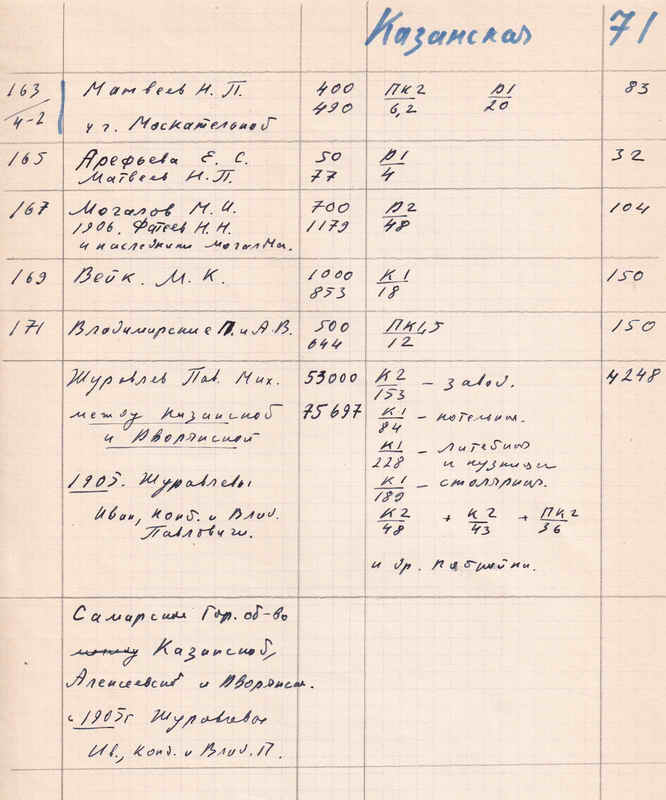 Казанская 71
163 Матвеев Н. П. 400 ПК2 Д1 83
4-2 490 6,2 20
уг. Москательной
165 Арефьева Е. С. 50 Д1 32
Матвеев Н.П. 77 4
167 Могалов М. И. 700 Д2 104
1906. Фатеев Н. Н. 1179 48
и наследники
169 Вейк. М. К. 1000 К1 150
853 18
171 Владимирские П. и А. В. 500 ПК1,5 150
644 12
Журавлев Пав. Мих. 53000 К2 – завод. 4248
153
между Казанской 75697 К1 – котельная.
84
и Дворянской К1 – литейная
228 и кузница
1905. Журавлевы К1 – столярная.
189
Иван, Конст. и Влад. К2 + К2 + ПК2
Павловичи. 48 43 36
и др. постройки.
Самарское Гор. об-во
между Казанской,
Алексеевской и Дворянск.
с 1905г Журавлевы
Ив., Конст. и Влад. П.